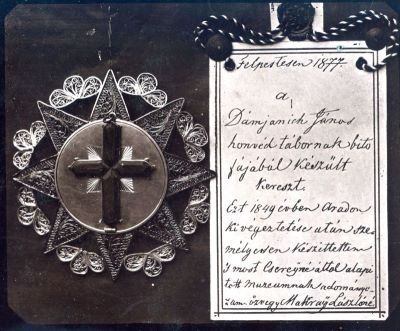 Felpestesen 1877.
a
Dámjanich János
honvéd tábornak bitó
fájából Készült
kereszt.
Ezt 1849 évben Aradon
ki végeztetése után sze=
mélyesen Készittettem
s most Cserejnéjáltal alapi
tott Muzeumnak adományo
zam. özvegy Makray Lászlóné